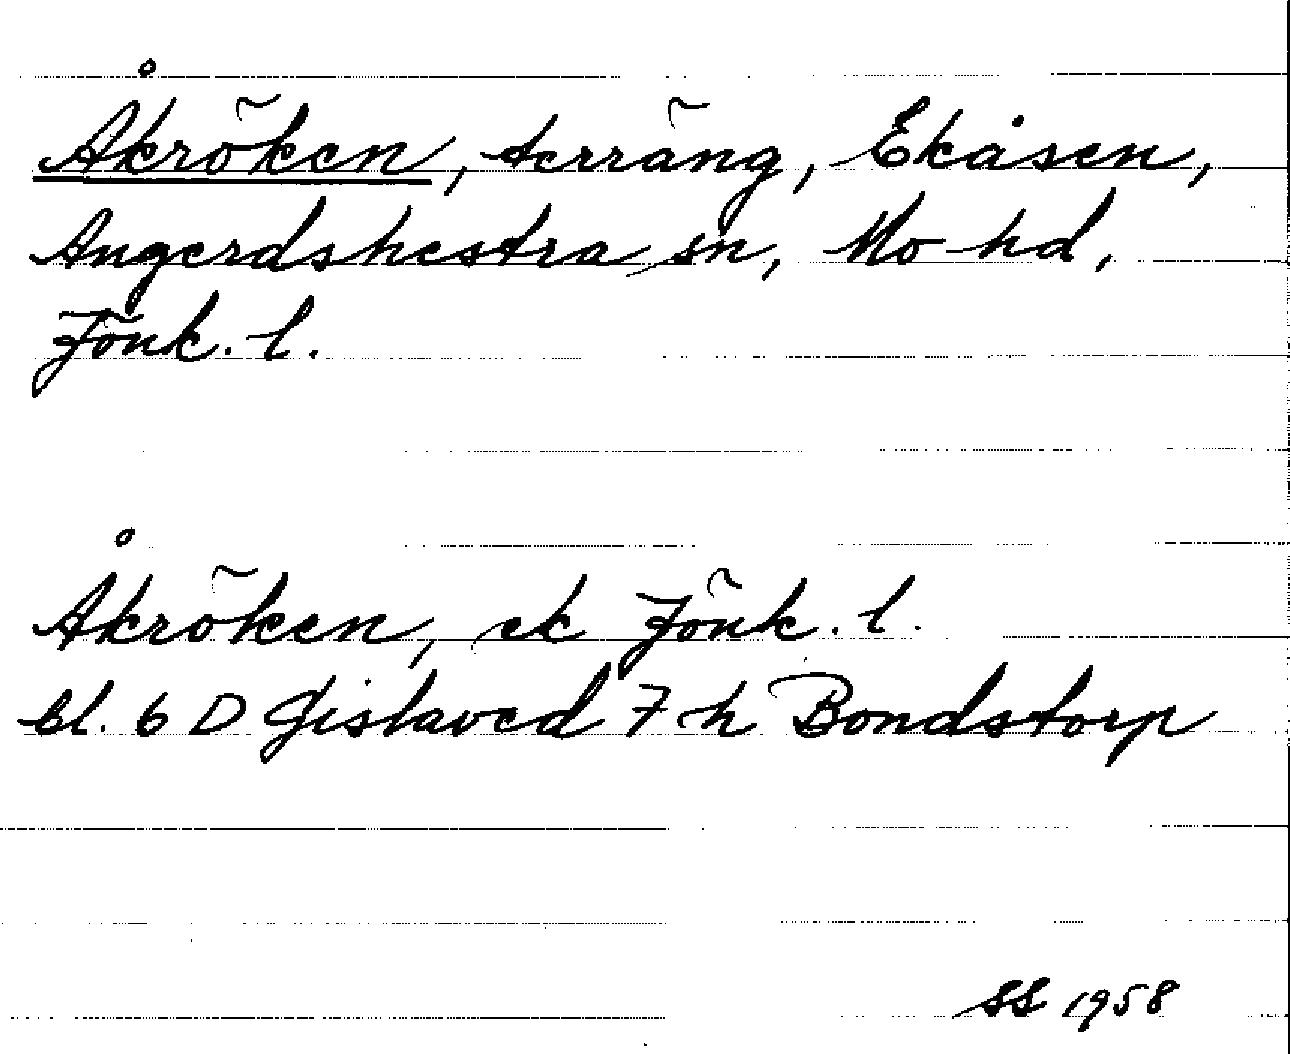 Åkröken, terräng, Ekåsen,
Angerdshestra sn, Mo hd,
Jönk. l.
Åkröken, ek Jönk. l.
bl. 6 D Gislaved 7 h Bondstorp
SS 1958